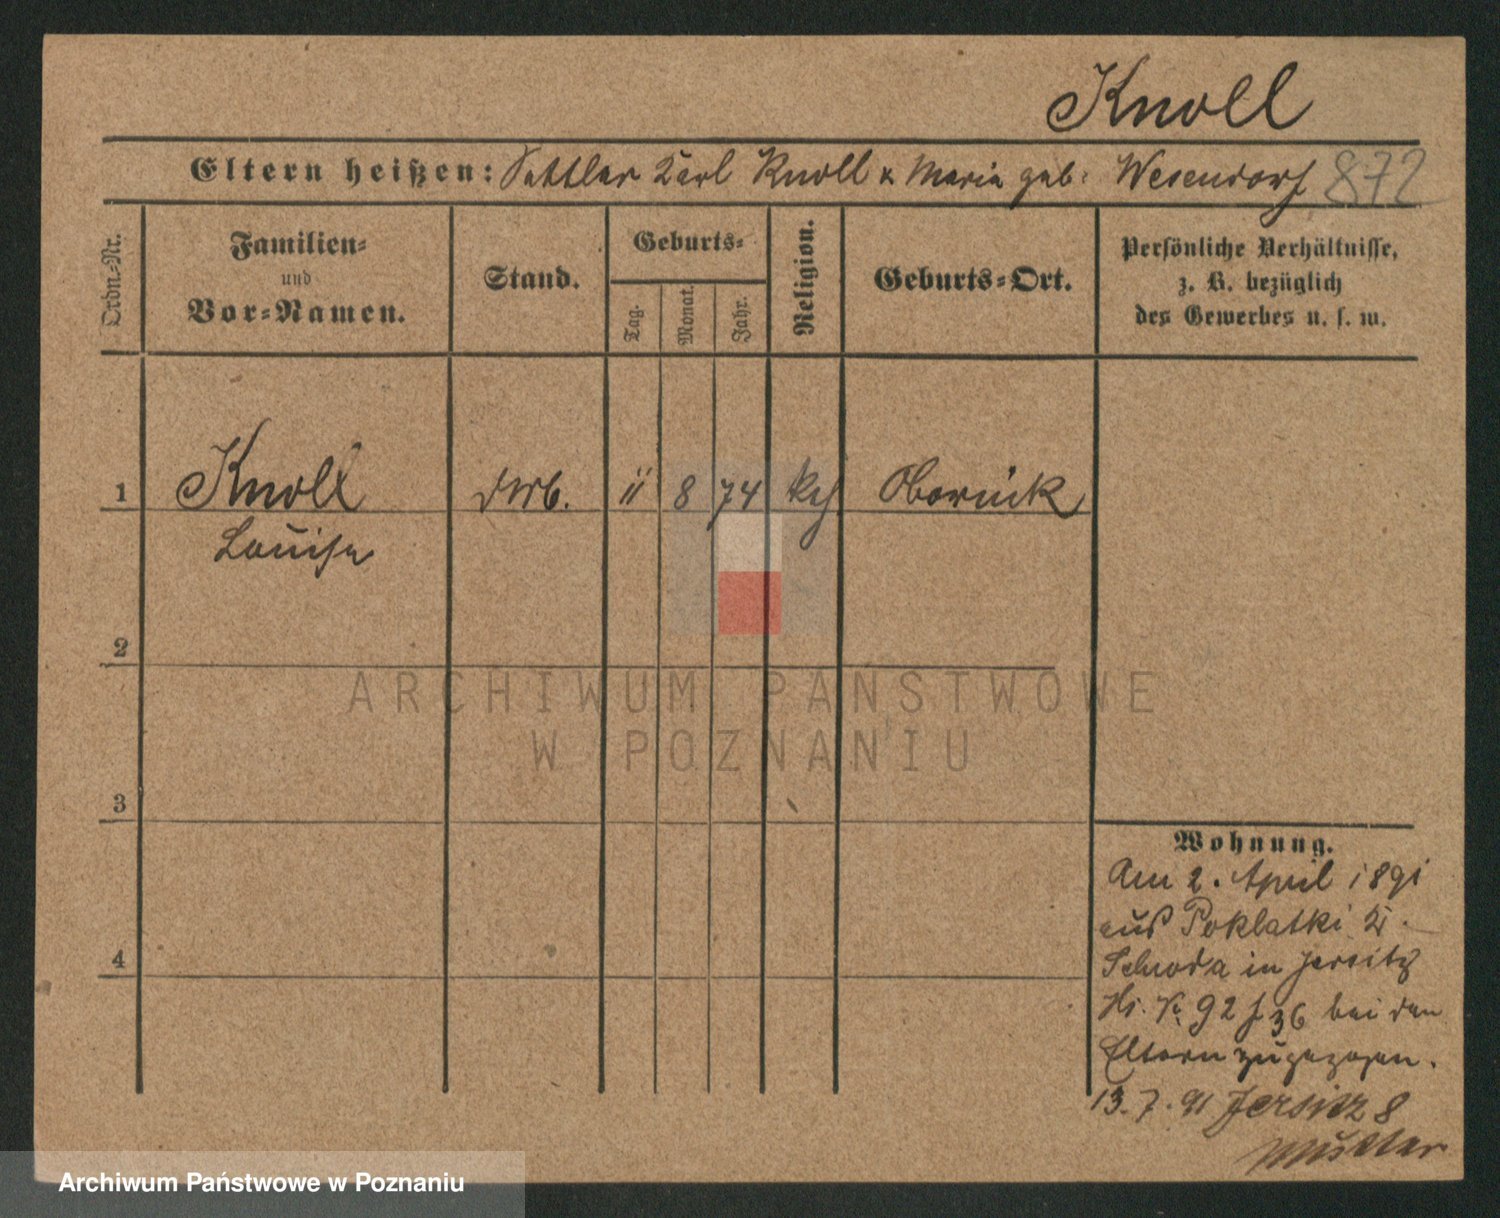 Knoll
Eltern heißen: Sattler Karl Knoll & Maria geb: Wesendorf 872
Ordn.-Nr.
Familien-
und
Vor-Namen.
Stand.
Geburts-
Tag.
Monat.
Jahr.
Religion.
Geburts-Ort.
Persönliche Verhältnisse,
z. B. bezüglich
des Gewerbes u. s. w.
1 Knoll 11 8 74 Obornick
Louise
2
3
4
Wohnung.
Am 2. April 1891
aus Poklatki Kr.
Schroda in Jersitz
92 36 bei den
Eltern zugezogen.
13.7.91 Jersitz 8
Mutter
ARCHIWUM PAŃSTWOWE
W POZNANIU
Archiwum Państwowe w Poznaniu